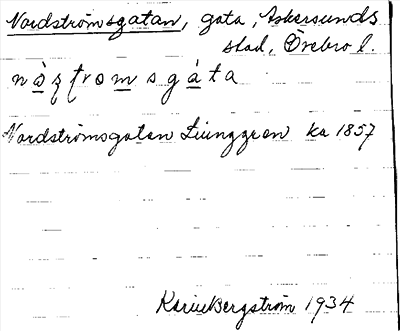 Nordströmsgatan, gata, Askersunds
stad, Örebro l.
Nordströmsgatan Ljunggren ka 1857
Karin Bergström 1934